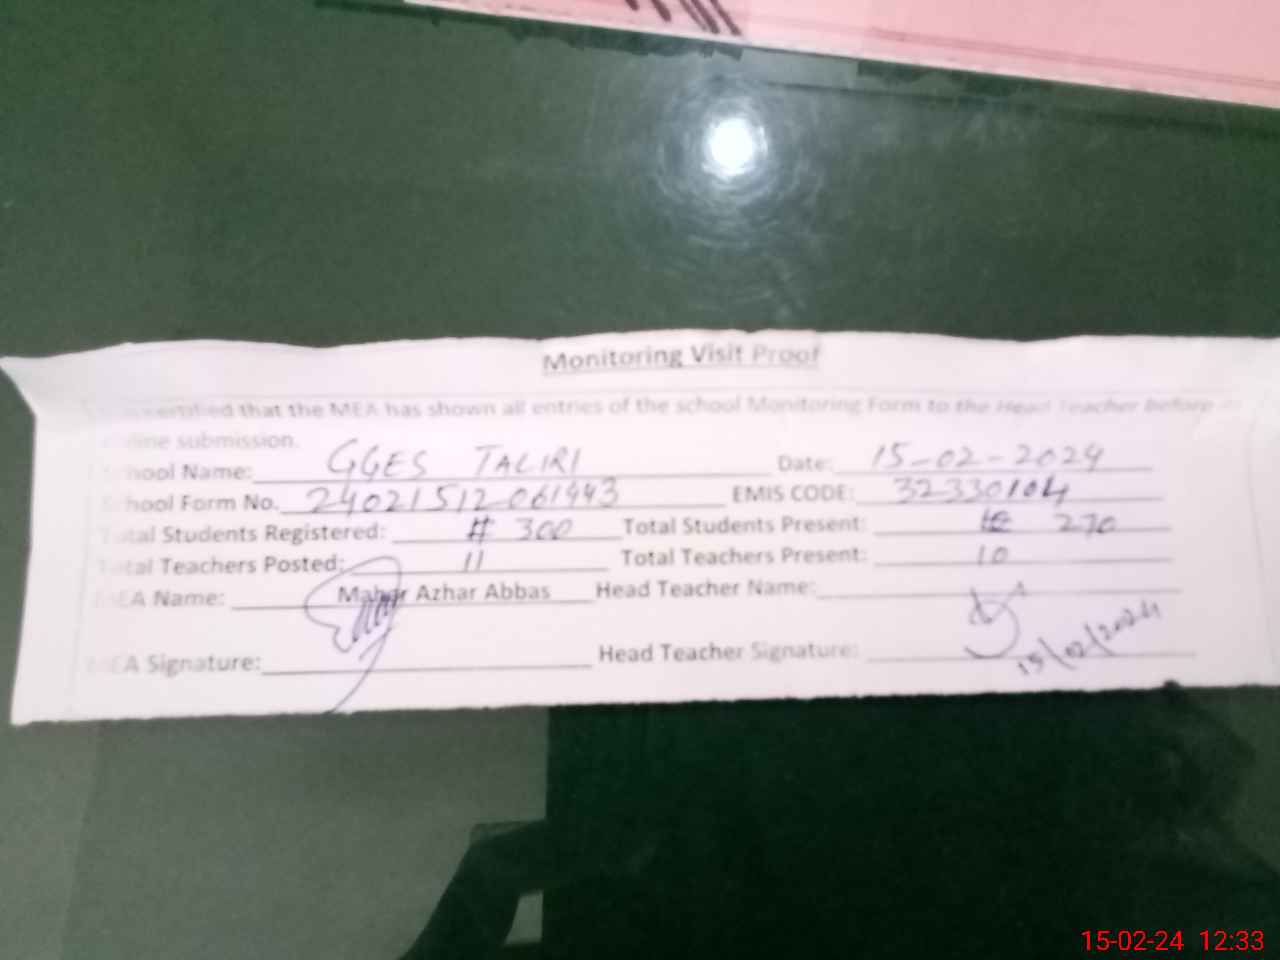 Monitoring Visit Proof
certified that the MEA has shown all entries of the school Monitoring Form to the Head Teacher before
submission.
School Name: GGES TALIRI Date: 15-02-2024
School Form No. 24021512061443 EMIS CODE: 32330104
Total Students Registered: # 300 Total Students Present: 270
Total Teachers Posted: 11 Total Teachers Present: 10
MEA Name: Mahar Azhar Abbas Head Teacher Name:
MEA Signature: Head Teacher Signature: 15/02/2024
15-02-24 12:33